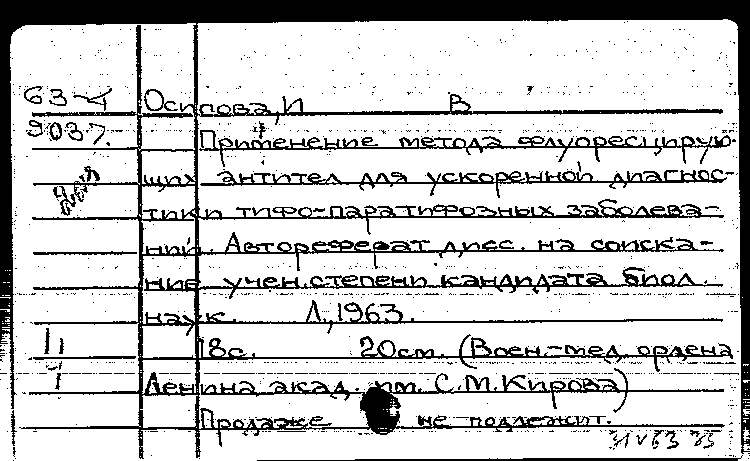 63-4 Осипова, И В
9037.
Применение метода флуоресцирую-
щих антител для ускоренной диагнос-
тики тифо-паратифозных заболева-
ний. Автореферат дисс. на соиска-
ние учен.степени кандидата биол.
наук. Л,1963.
18с. 20см. (Воен.-мед. ордена
Ленина акад. им. С.М.Кирова)
Продаже не подлежит.